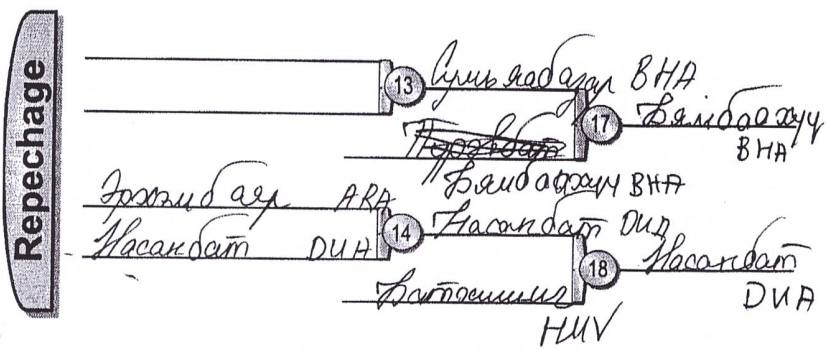 Repechage
13 Сумъяабазар ВНА
17 Бямбаахүү
ВНА
Бямбадхүү ВНА
Эрхэмбаяр ARA
Насанбат DUA
14 Насанбат DUA
18 Насанбат
DUA
Батжишиг
HUV